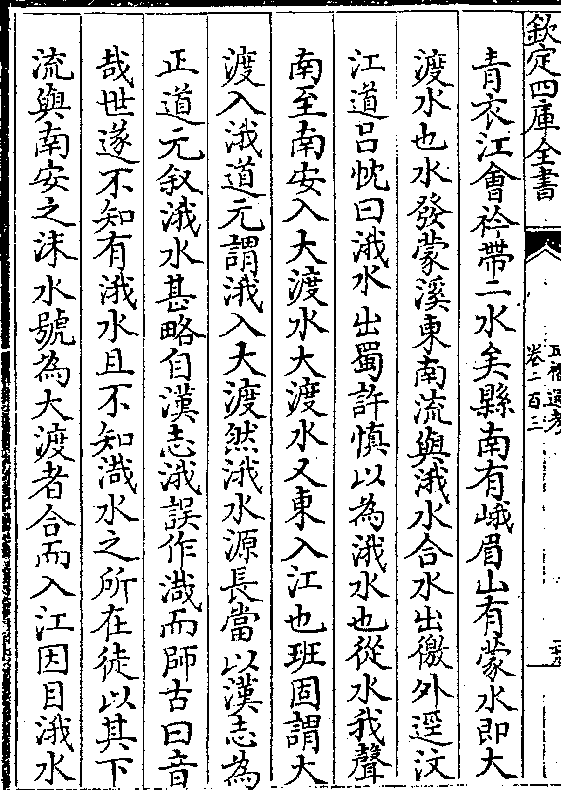 欽定四庫全書
五禮通考
卷二百三
青衣江會衿帶二水矣縣南有峨眉山有蒙水即大
渡水也水發蒙溪東南流與涐水合水出徼外逕汶
江道呂忱曰涐水出蜀許慎以為涐水也從水我聲
南至南安入大渡水大渡水又東入江也班固謂大
渡入涐道元謂涐入大渡然涐水源長當以漢志為
正道元叙涐水甚略自漢志涐誤作渽而師古曰音
哉世遂不知有涐水且不知渽水之所在徒以其下
流與南安之沫水號為大渡者合而入江因目涐水